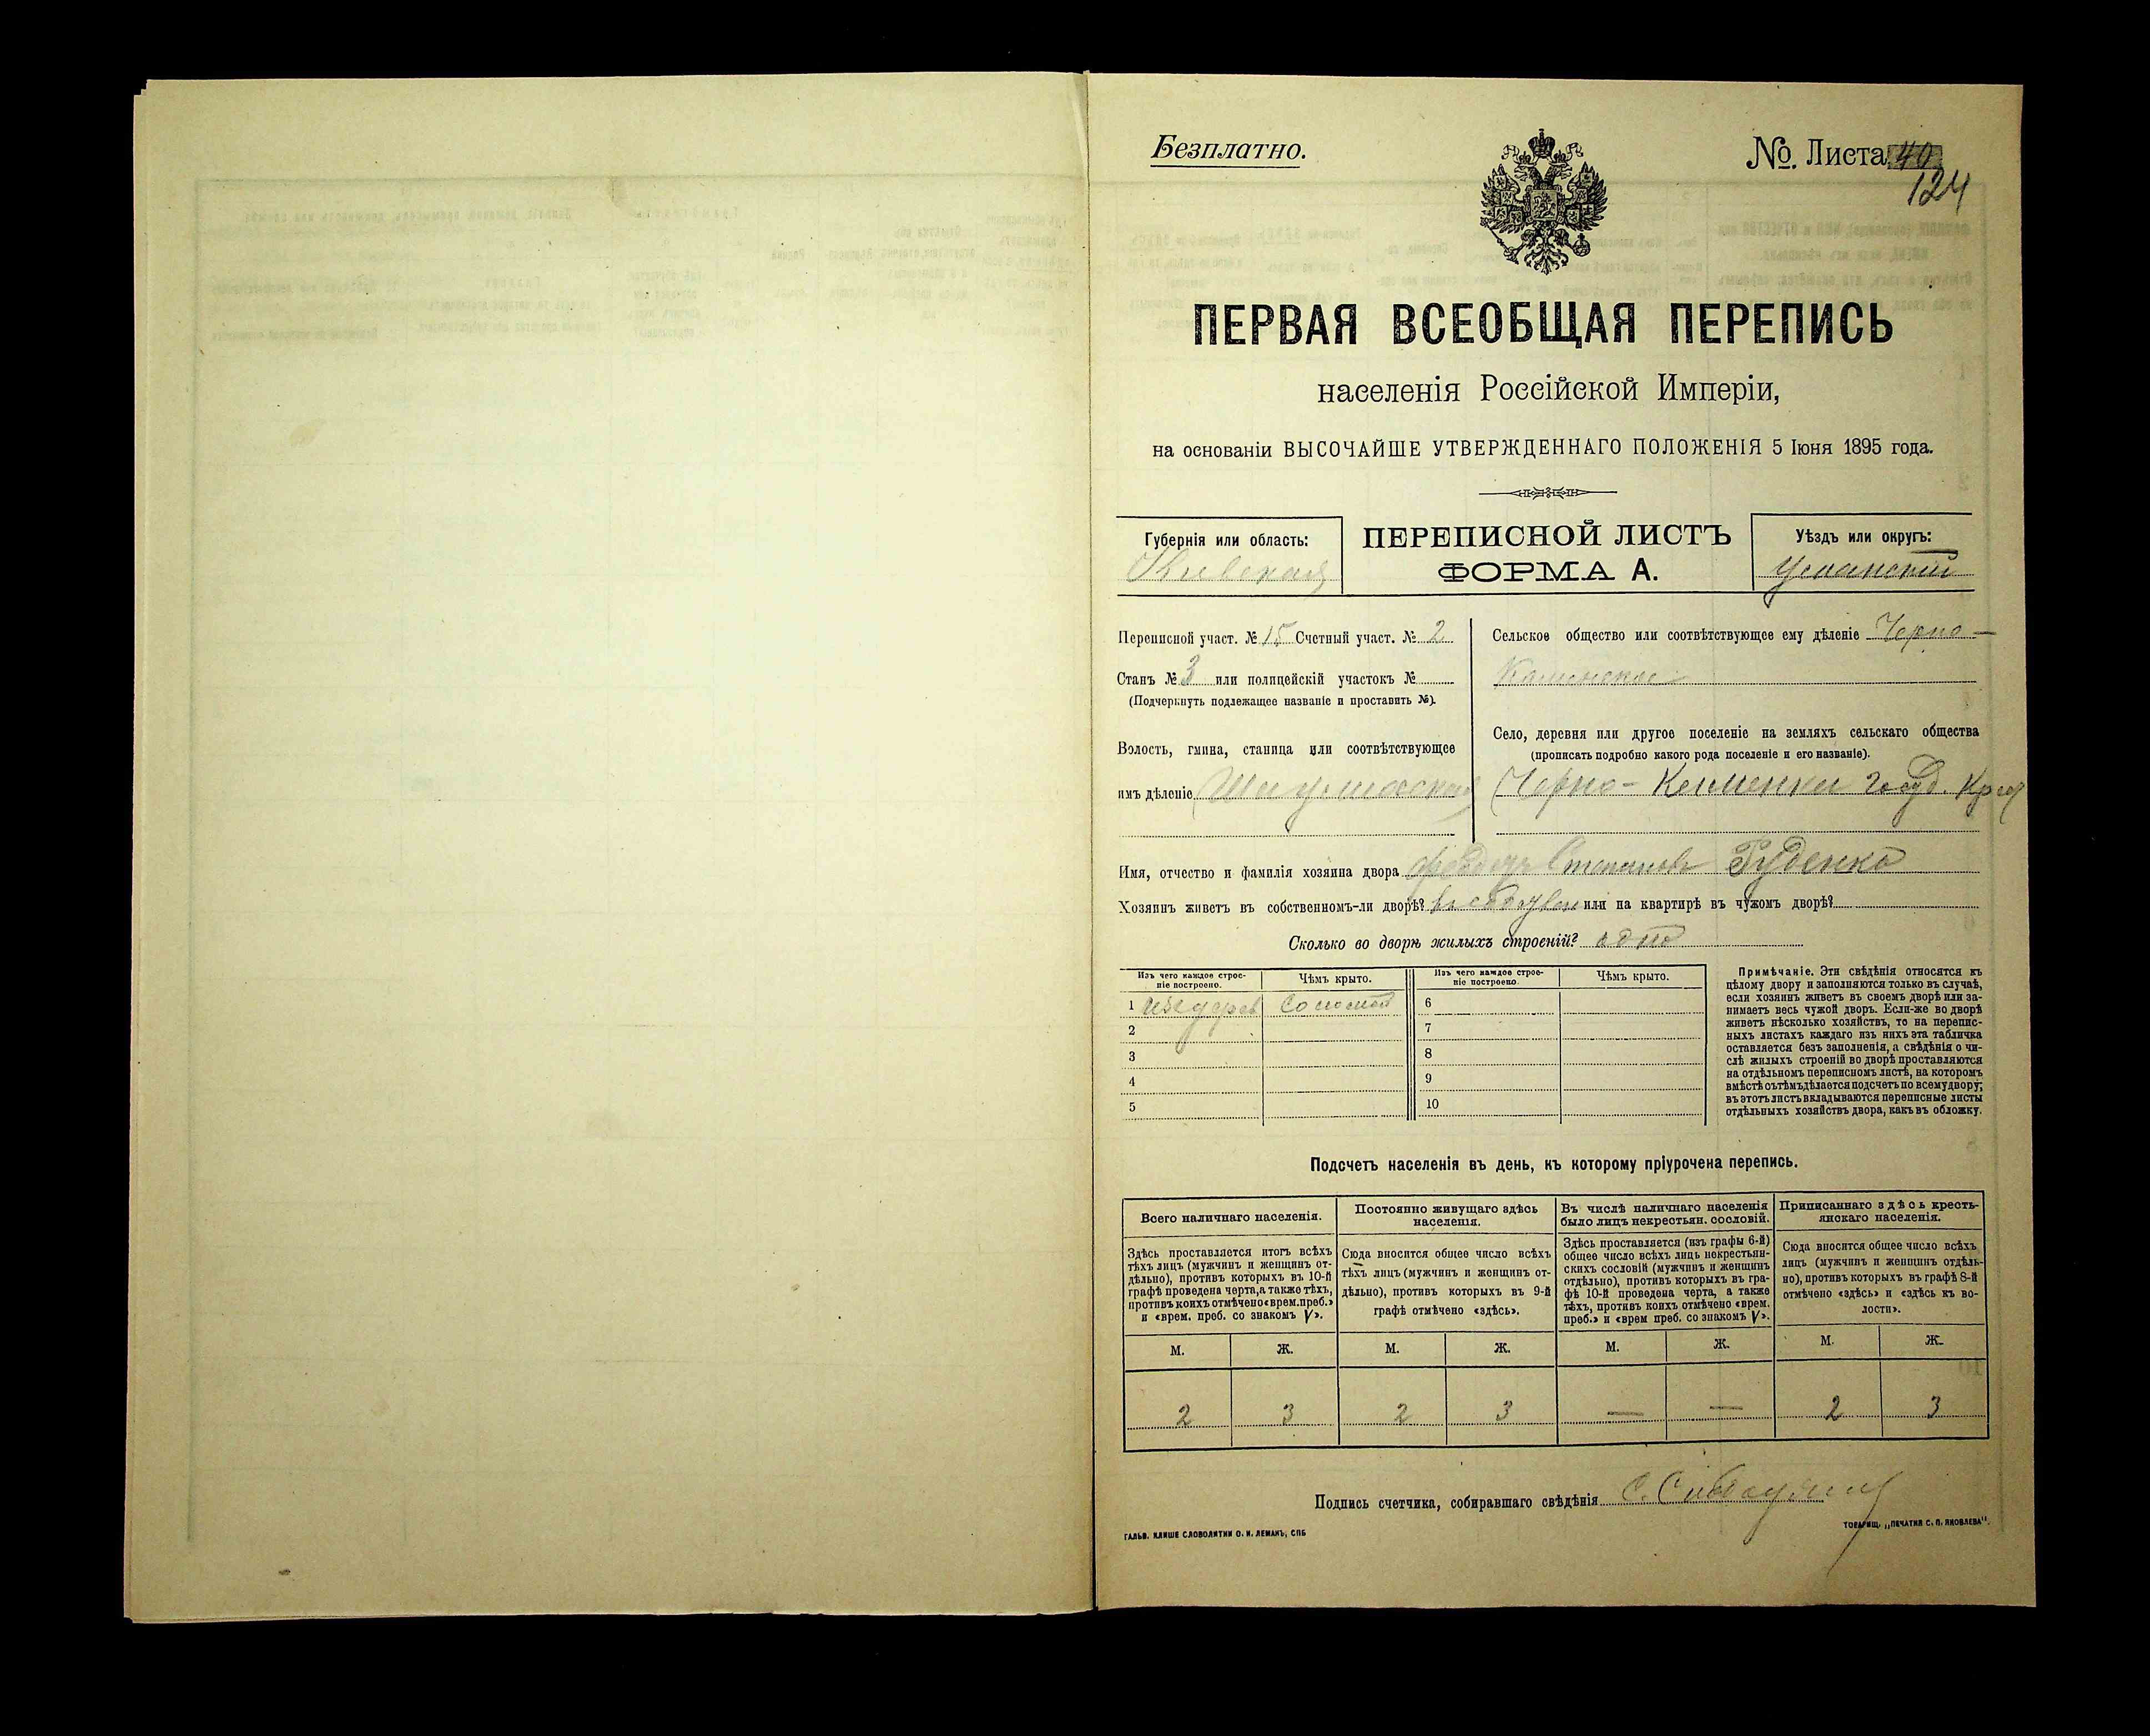 Безплатно.
№. Листа 40
124
ПЕРВАЯ ВСЕОБЩАЯ ПЕРЕПИСЬ
населенія Россійской Имперіи,
на основаніи ВЫСОЧАЙШЕ УТВЕРЖДЕННАГО ПОЛОЖЕНІЯ 5 Іюня 1895 года.
Губернія или область:
Кіевская
ПЕРЕПИСНОЙ ЛИСТЪ
ФОРМА А.
Уѣздъ или округъ:
Уманскій
Переписной участ. № 15 Счетный участ. № 2
Станъ № 3 или полицейскій участокъ №
(Подчеркнуть подлежащее названіе и проставить №).
Волость, гмина, станица или соотвѣтствующее
имъ дѣленіе
Сельское общество или соотвѣтствующее ему дѣленіе Черно-
Каменское
Село, деревня или другое поселеніе на земляхъ сельскаго общества
(прописать подробно какого рода поселеніе и его названіе).
Черно-Каменка госуд. Крест
Имя, отчество и фамилія хозяина двора Ѳеодоръ Степановъ Руденко
Хозяинъ живетъ въ собственномъ-ли дворѣ? или на квартирѣ въ чужомъ дворѣ?
Сколько во дворѣ жилыхъ строеній? одно
Изъ чего каждое строе-
ніе построено.
Чѣмъ крыто.
Изъ чего каждое строе-
ніе построено.
Чѣмъ крыто.
1 изъ дерев соломой
2
3
4
5
6
7
8
9
10
Примѣчаніе. Эти свѣдѣнія относятся къ
цѣлому двору и заполняются только въ случаѣ,
если хозяинъ живетъ въ своемъ дворѣ или за-
нимаетъ весь чужой дворъ. Если-же во дворѣ
живетъ нѣсколько хозяйствъ, то на перепис-
ныхъ листахъ каждаго изъ нихъ эта табличка
оставляется безъ заполненія, а свѣдѣнія о чи-
слѣ жилыхъ строеній во дворѣ проставляются
на отдѣльномъ переписномъ листѣ, на которомъ
вмѣстѣ съ тѣмъ дѣлается подсчетъ по всему двору;
въ этотъ листъ вкладываются переписные листы
отдѣльныхъ хозяйствъ двора, какъ въ обложку.
Подсчетъ населенія въ день, къ которому пріурочена перепись.
Всего наличнаго населенія.
Здѣсь проставляется итогъ всѣхъ
тѣхъ лицъ (мужчинъ и женщинъ от-
дѣльно), противъ которыхъ въ 10-й
графѣ проведена черта, а также тѣхъ,
противъ коихъ отмѣчено «врем. преб.»
и «врем. преб. со знакомъ V».
Постоянно живущаго здѣсь
населенія.
Сюда вносится общее число всѣхъ
тѣхъ лицъ (мужчинъ и женщинъ от-
дѣльно), противъ которыхъ въ 9-й
графѣ отмѣчено «здѣсь».
Въ числѣ наличнаго населенія
было лицъ некрестьян. сословій.
Здѣсь проставляется (изъ графы 6-й)
общее число всѣхъ лицъ некрестьян-
скихъ сословій (мужчинъ и женщинъ
отдѣльно), противъ которыхъ въ гра-
фѣ 10-й проведена черта, а также
тѣхъ, противъ коихъ отмѣчено «врем.
преб.» и «врем преб. со знакомъ V».
Приписаннаго здѣсь кресть-
янскаго населенія.
Сюда вносится общее число всѣхъ
лицъ (мужчинъ и женщинъ отдѣль-
но), противъ которыхъ въ графѣ 8-й
отмѣчено «здѣсь» и «здѣсь къ во-
лости».
М. Ж. М. Ж. М. Ж. М. Ж.
2 3 2 3 — — 2 3
Подпись счетчика, собиравшаго свѣдѣнія
ГАЛЬВ. КЛИШЕ СЛОВОЛИТНИ О. И. ЛЕМАНЪ, СПБ
ТОВАРИЩ. „ПЕЧАТНЯ С. П. ЯКОВЛЕВА“.